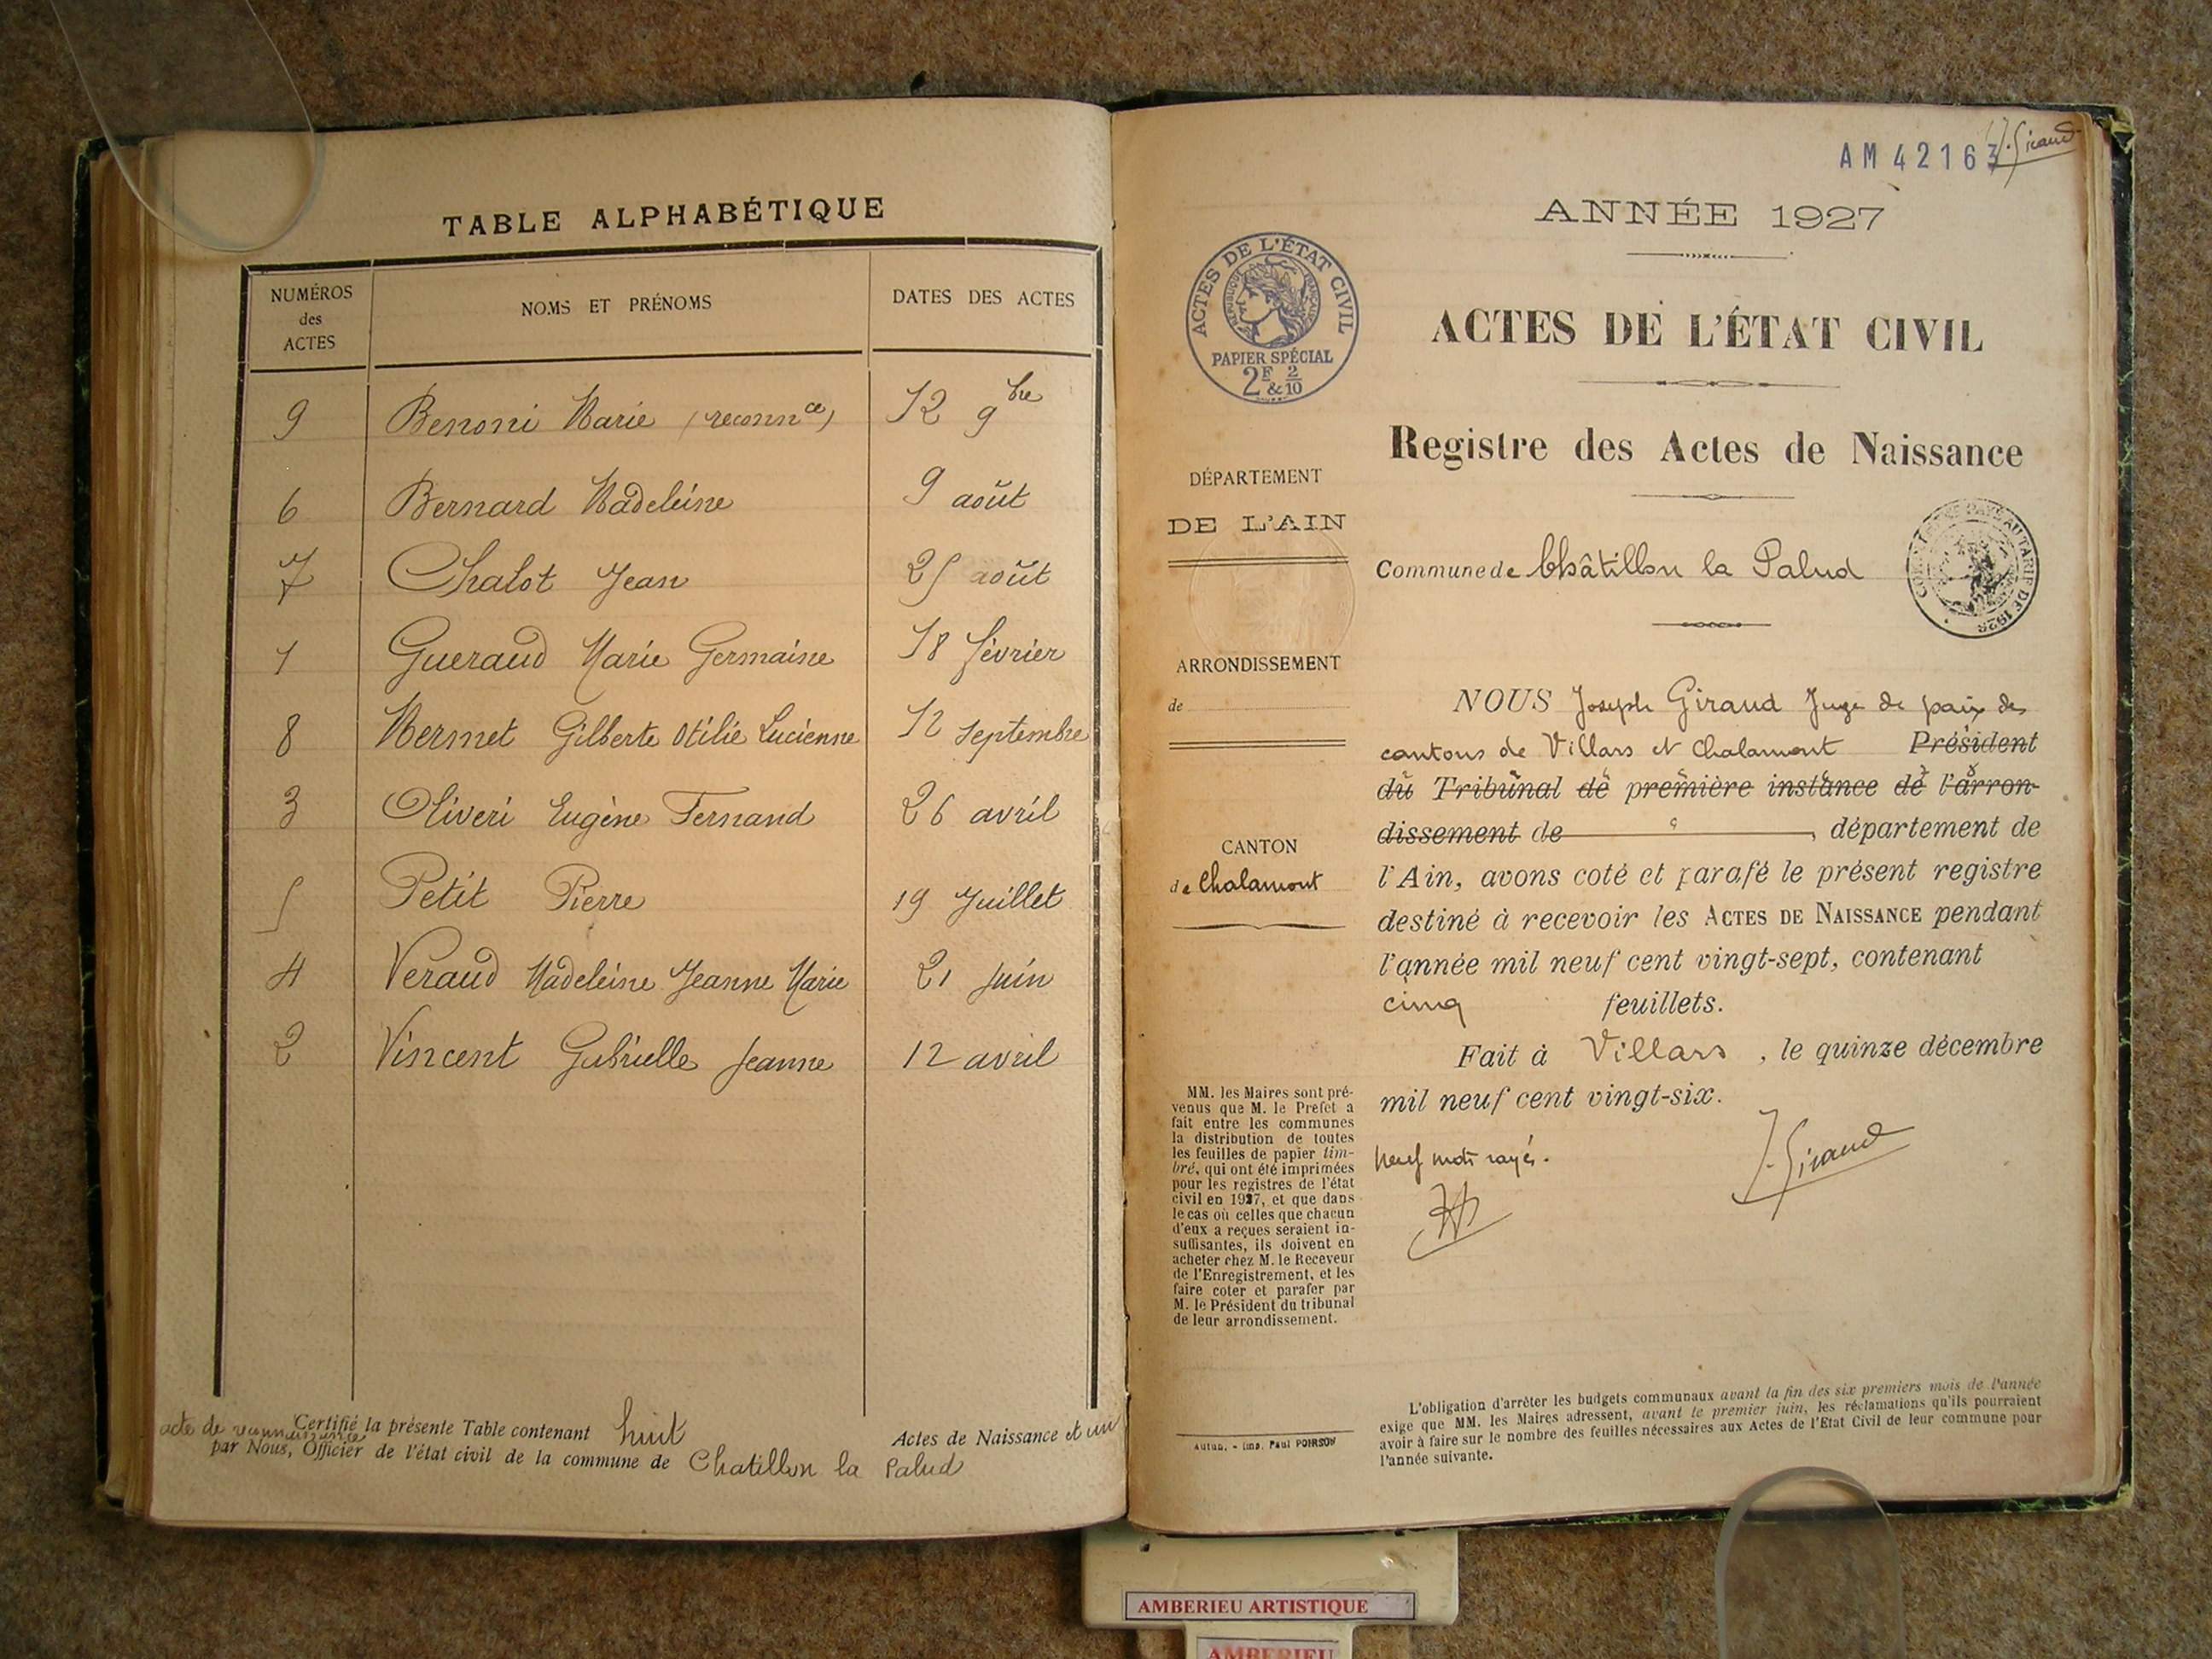 TABLE ALPHABÉTIQUE
NUMÉROS des ACTES
NOMS ET PRÉNOMS
DATES DES ACTES
9 Benoni Marie (reconnce) 12 9bre
6 Bernard Madeleine 9 août
7 Chalot Jean 25 août
1 Gueraud Marie Germaine 18 février
8 Mermet Gilberte Otilie Lucienne 12 Septembre
3 Oliveri Eugène Fernand 26 avril
5 Petit Pierre 19 Juillet
4 Veraud Madeleine Jeanne Marie 21 Juin
2 Vincent Gabrielle Jeanne 12 avril
Certifié la présente Table contenant huit Actes de Naissance et un
acte de reconnaissance
par Nous, Officier de l'état civil de la commune de Chatillon la Palud
AM 42163
J. Giraud
ANNÉE 1927
ACTES DE L'ÉTAT CIVIL
RÉPUBLIQUE FRANÇAISE
PAPIER SPÉCIAL
2F & 2/10
ACTES DE L'ÉTAT CIVIL
Registre des Actes de Naissance
DÉPARTEMENT
DE L'AIN
Commune de Châtillon la Palud
TARIF DE 1926
ARRONDISSEMENT
de
CANTON
de Chalamont
NOUS Joseph Giraud Juge de paix des
cantons de Villars et Chalamont Président
du Tribunal de première instance de l'arron-
dissement de , département de
l'Ain, avons coté et parafé le présent registre
destiné à recevoir les ACTES DE NAISSANCE pendant
l'année mil neuf cent vingt-sept, contenant
cinq feuillets.
Fait à Villars, le quinze décembre
mil neuf cent vingt-six.
Neuf mots rayés.
J. Giraud
MM. les Maires sont pré-
venus que M. le Préfet a
fait entre les communes
la distribution de toutes
les feuilles de papier tim-
bré, qui ont été imprimées
pour les registres de l'état
civil en 1927, et que dans
le cas où celles que chacun
d'eux a reçues seraient in-
suffisantes, ils doivent en
acheter chez M. le Receveur
de l'Enregistrement, et les
faire coter et parafer par
M. le Président du tribunal
de leur arrondissement.
Autun. - Imp. Paul POIRSON
L'obligation d'arrêter les budgets communaux avant la fin des six premiers mois de l'année
exige que MM. les Maires adressent, avant le premier juin, les réclamations qu'ils pourraient
avoir à faire sur le nombre des feuilles nécessaires aux Actes de l'État Civil de leur commune pour
l'année suivante.
AMBERIEU ARTISTIQUE
AMBERIEU